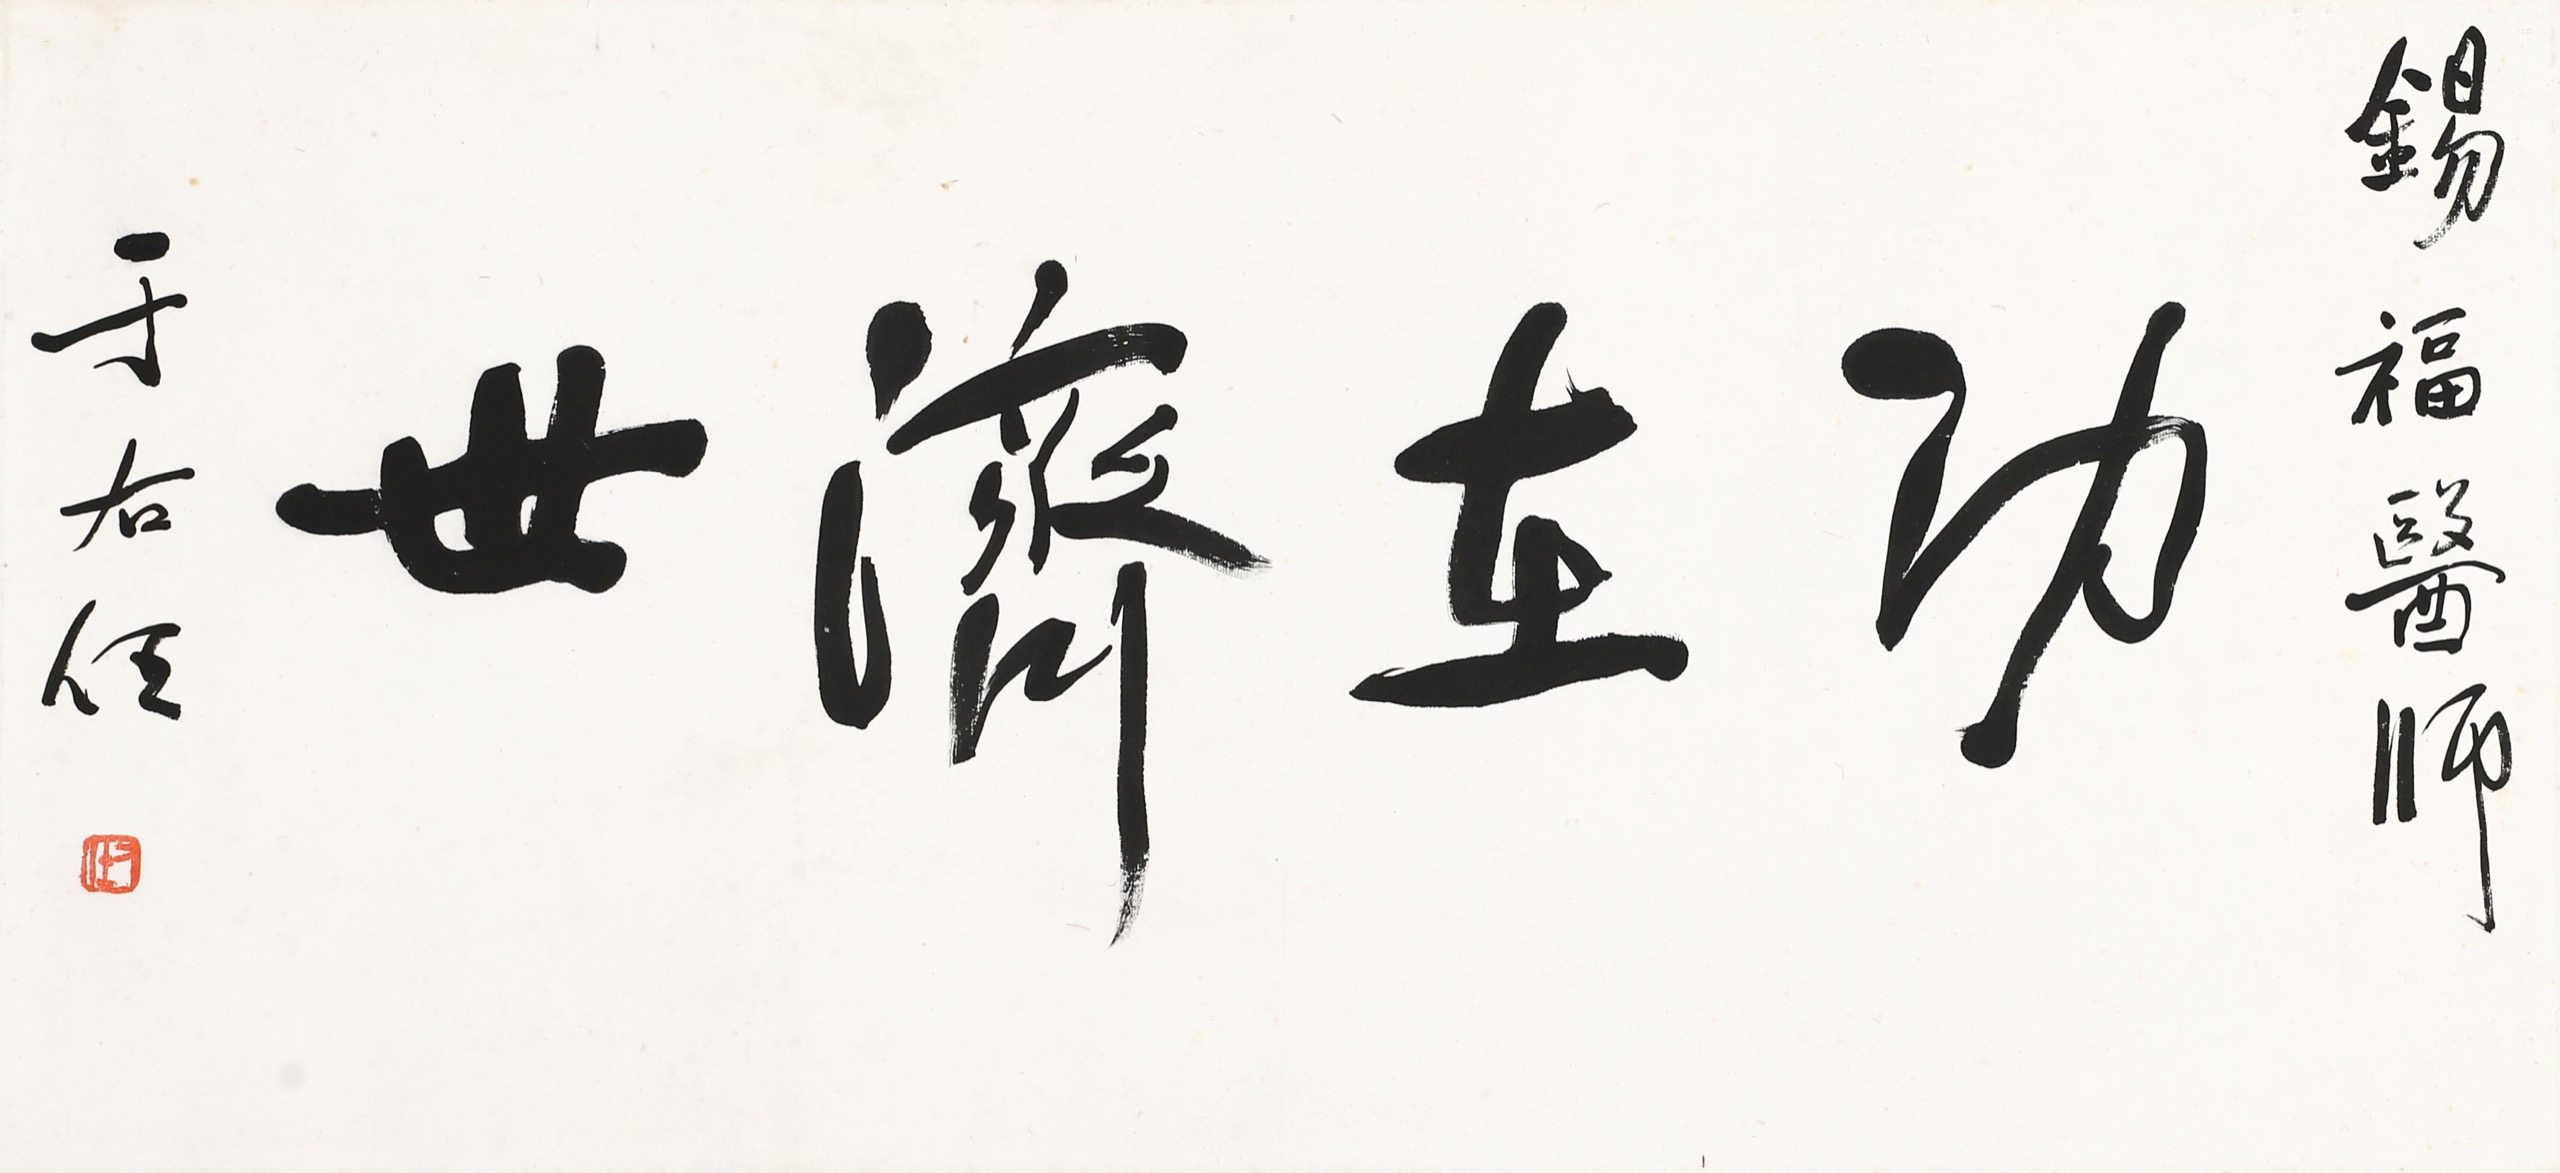 錫福醫師
功在濟世
于右任